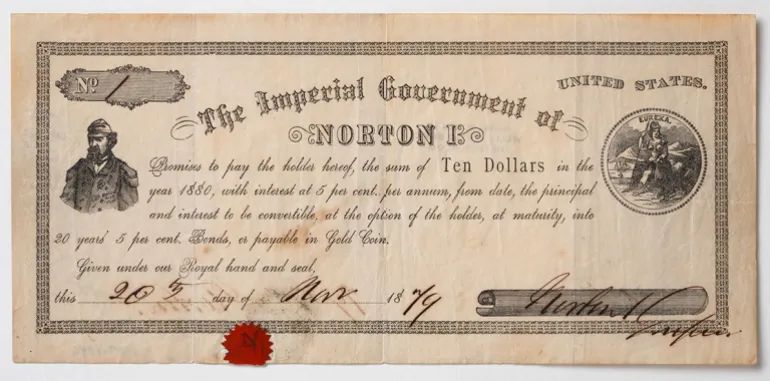 No. 1
UNITED STATES.
The Imperial Government of
NORTON I.
EUREKA.
Promises to pay the holder hereof, the sum of Ten Dollars in the
year 1880, with interest at 5 per cent. per annum, from date, the principal
and interest to be convertible, at the option of the holder, at maturity, into
20 years' 5 per cent. Bonds, or payable in Gold Coin.
Given under our Royal hand and seal,
this 20th day of Nov 1879
Norton I
N